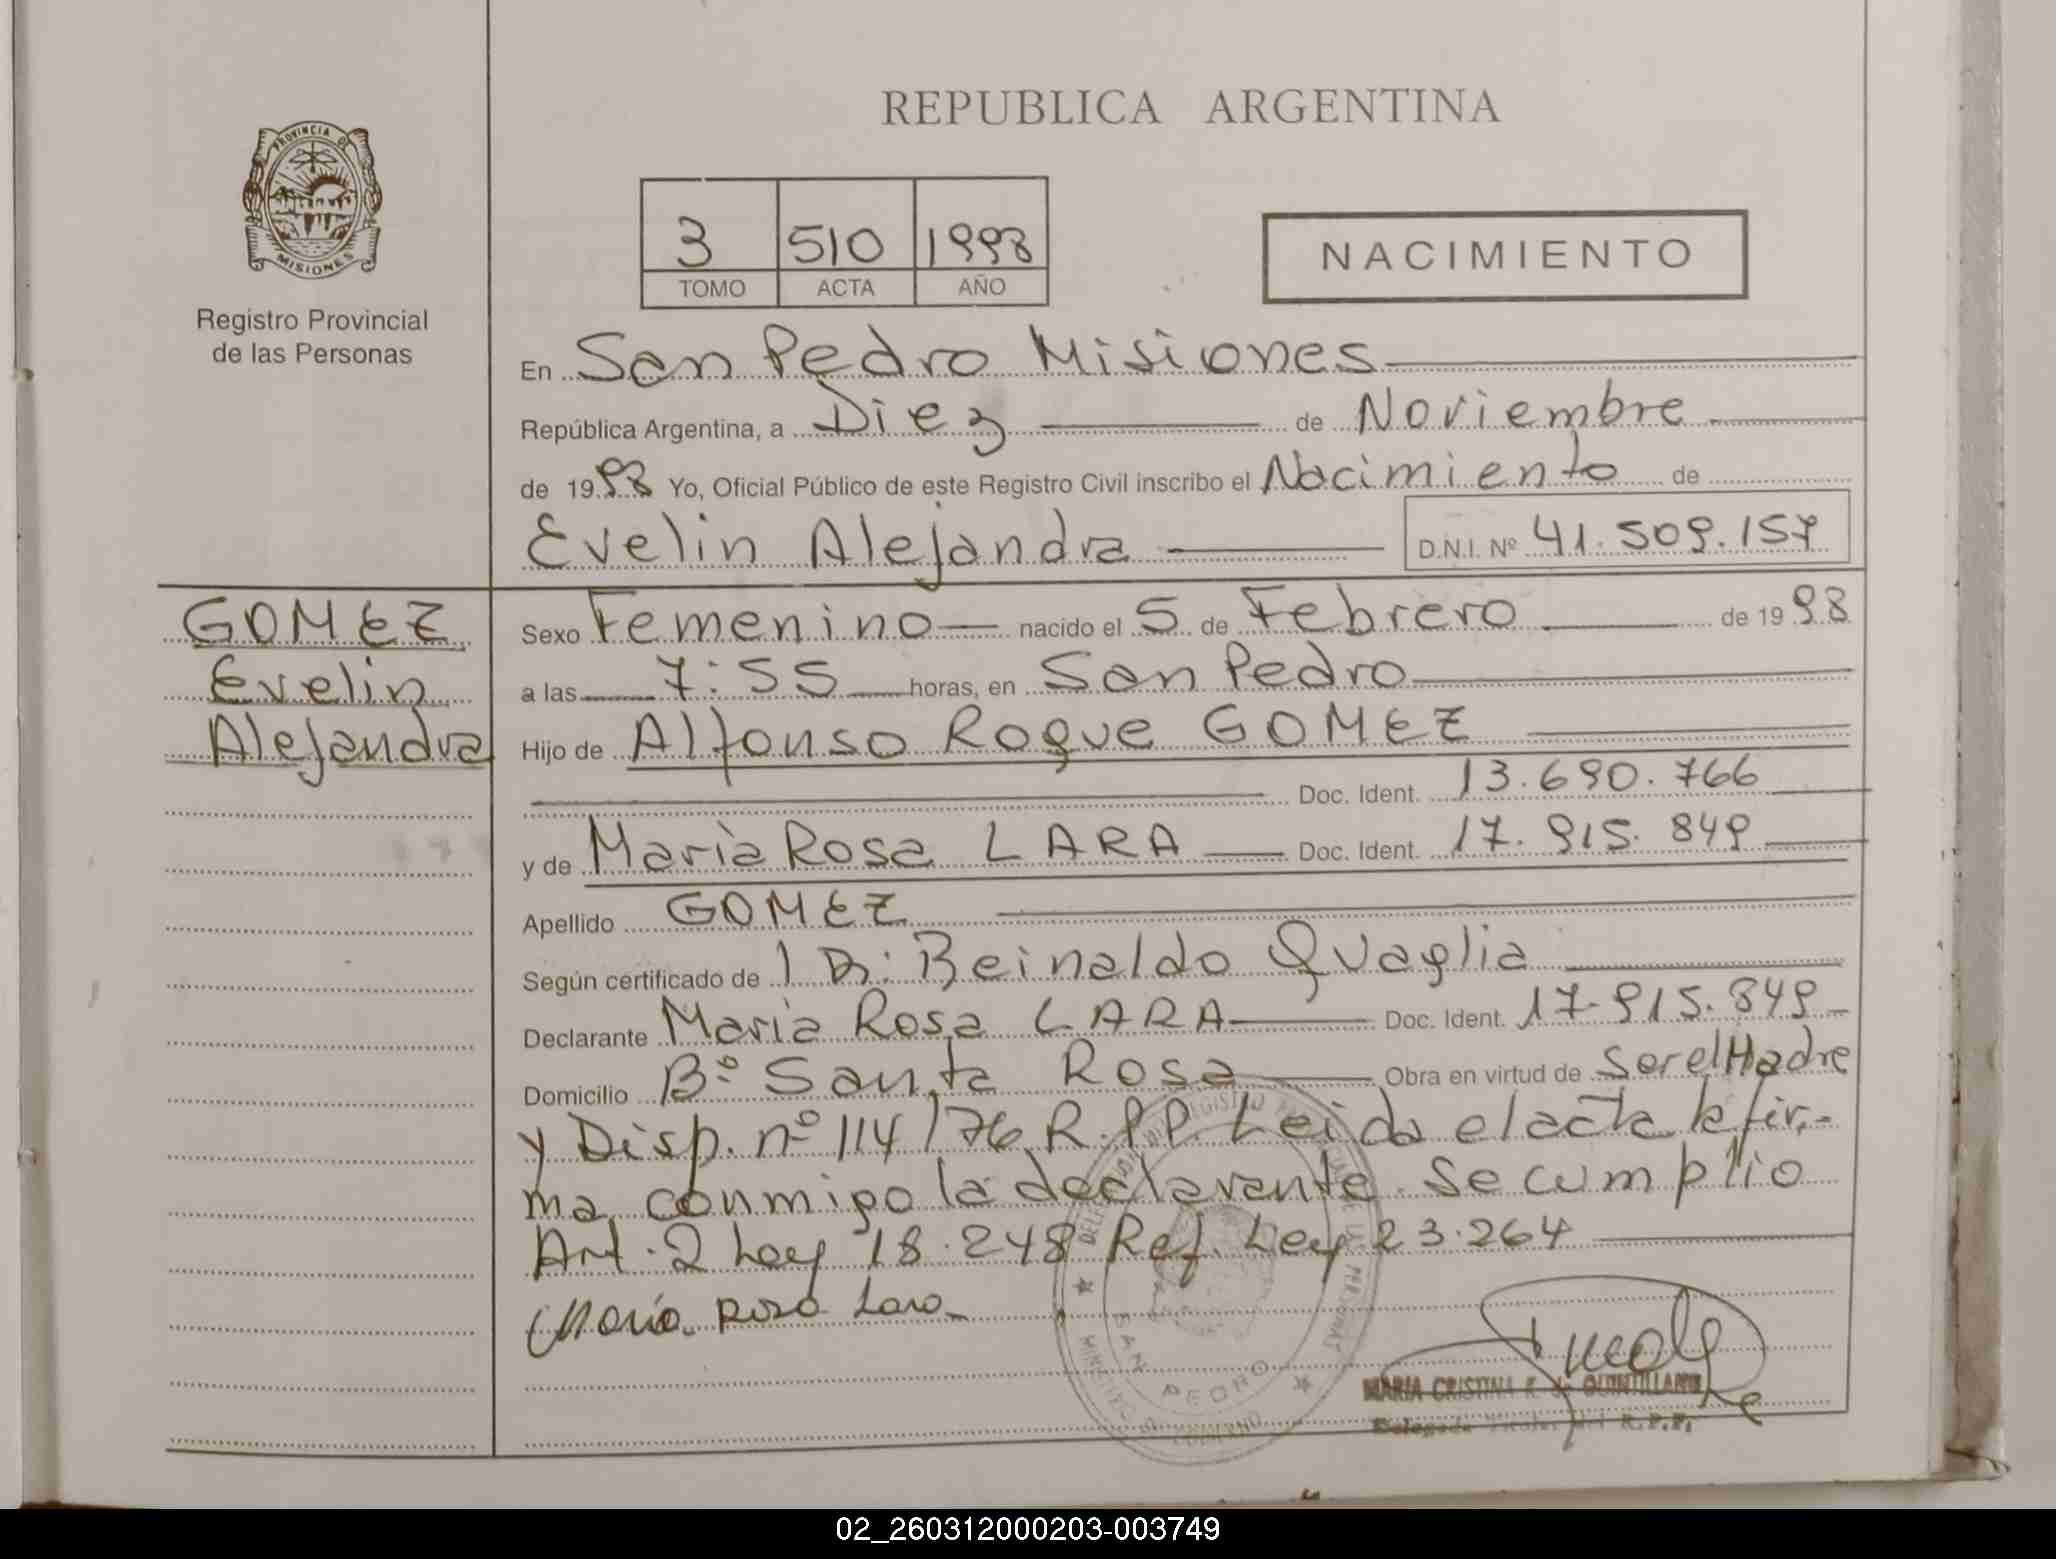 REPUBLICA ARGENTINA
PROVINCIA DE
MISIONES
Registro Provincial
de las Personas
3 510 1998
TOMO ACTA AÑO
NACIMIENTO
En San Pedro Misiones
República Argentina, a Diez de Noviembre
de 1998 Yo, Oficial Público de este Registro Civil inscribo el Nacimiento de
Evelin Alejandra D.N.I. Nº 41.509.157
GOMEZ
Evelin
Alejandra
Sexo Femenino nacido el 5 de Febrero de 1998
a las 7:55 horas, en San Pedro
Hijo de Alfonso Roque GOMEZ
Doc. Ident. 13.690.766
y de Marìa Rosa LARA Doc. Ident. 17.915.849
Apellido GOMEZ
Según certificado de 1 Dr: Reinaldo Quaglia
Declarante Marìa Rosa LARA Doc. Ident. 17.915.849
Domicilio Bº Santa Rosa Obra en virtud de Ser el Madre
y Disp. nº 114/76 R.P.P. Leida el acta la fir-
ma conmigo la declarante. Se cumplio
Art. 2 Ley 18.248 Ref. Ley 23.264
María Rosa Lara
SAN PEDRO
MARIA CRISTINA F. de QUINTILLAN
Delegada Titular del R.P.P.
02_260312000203-003749